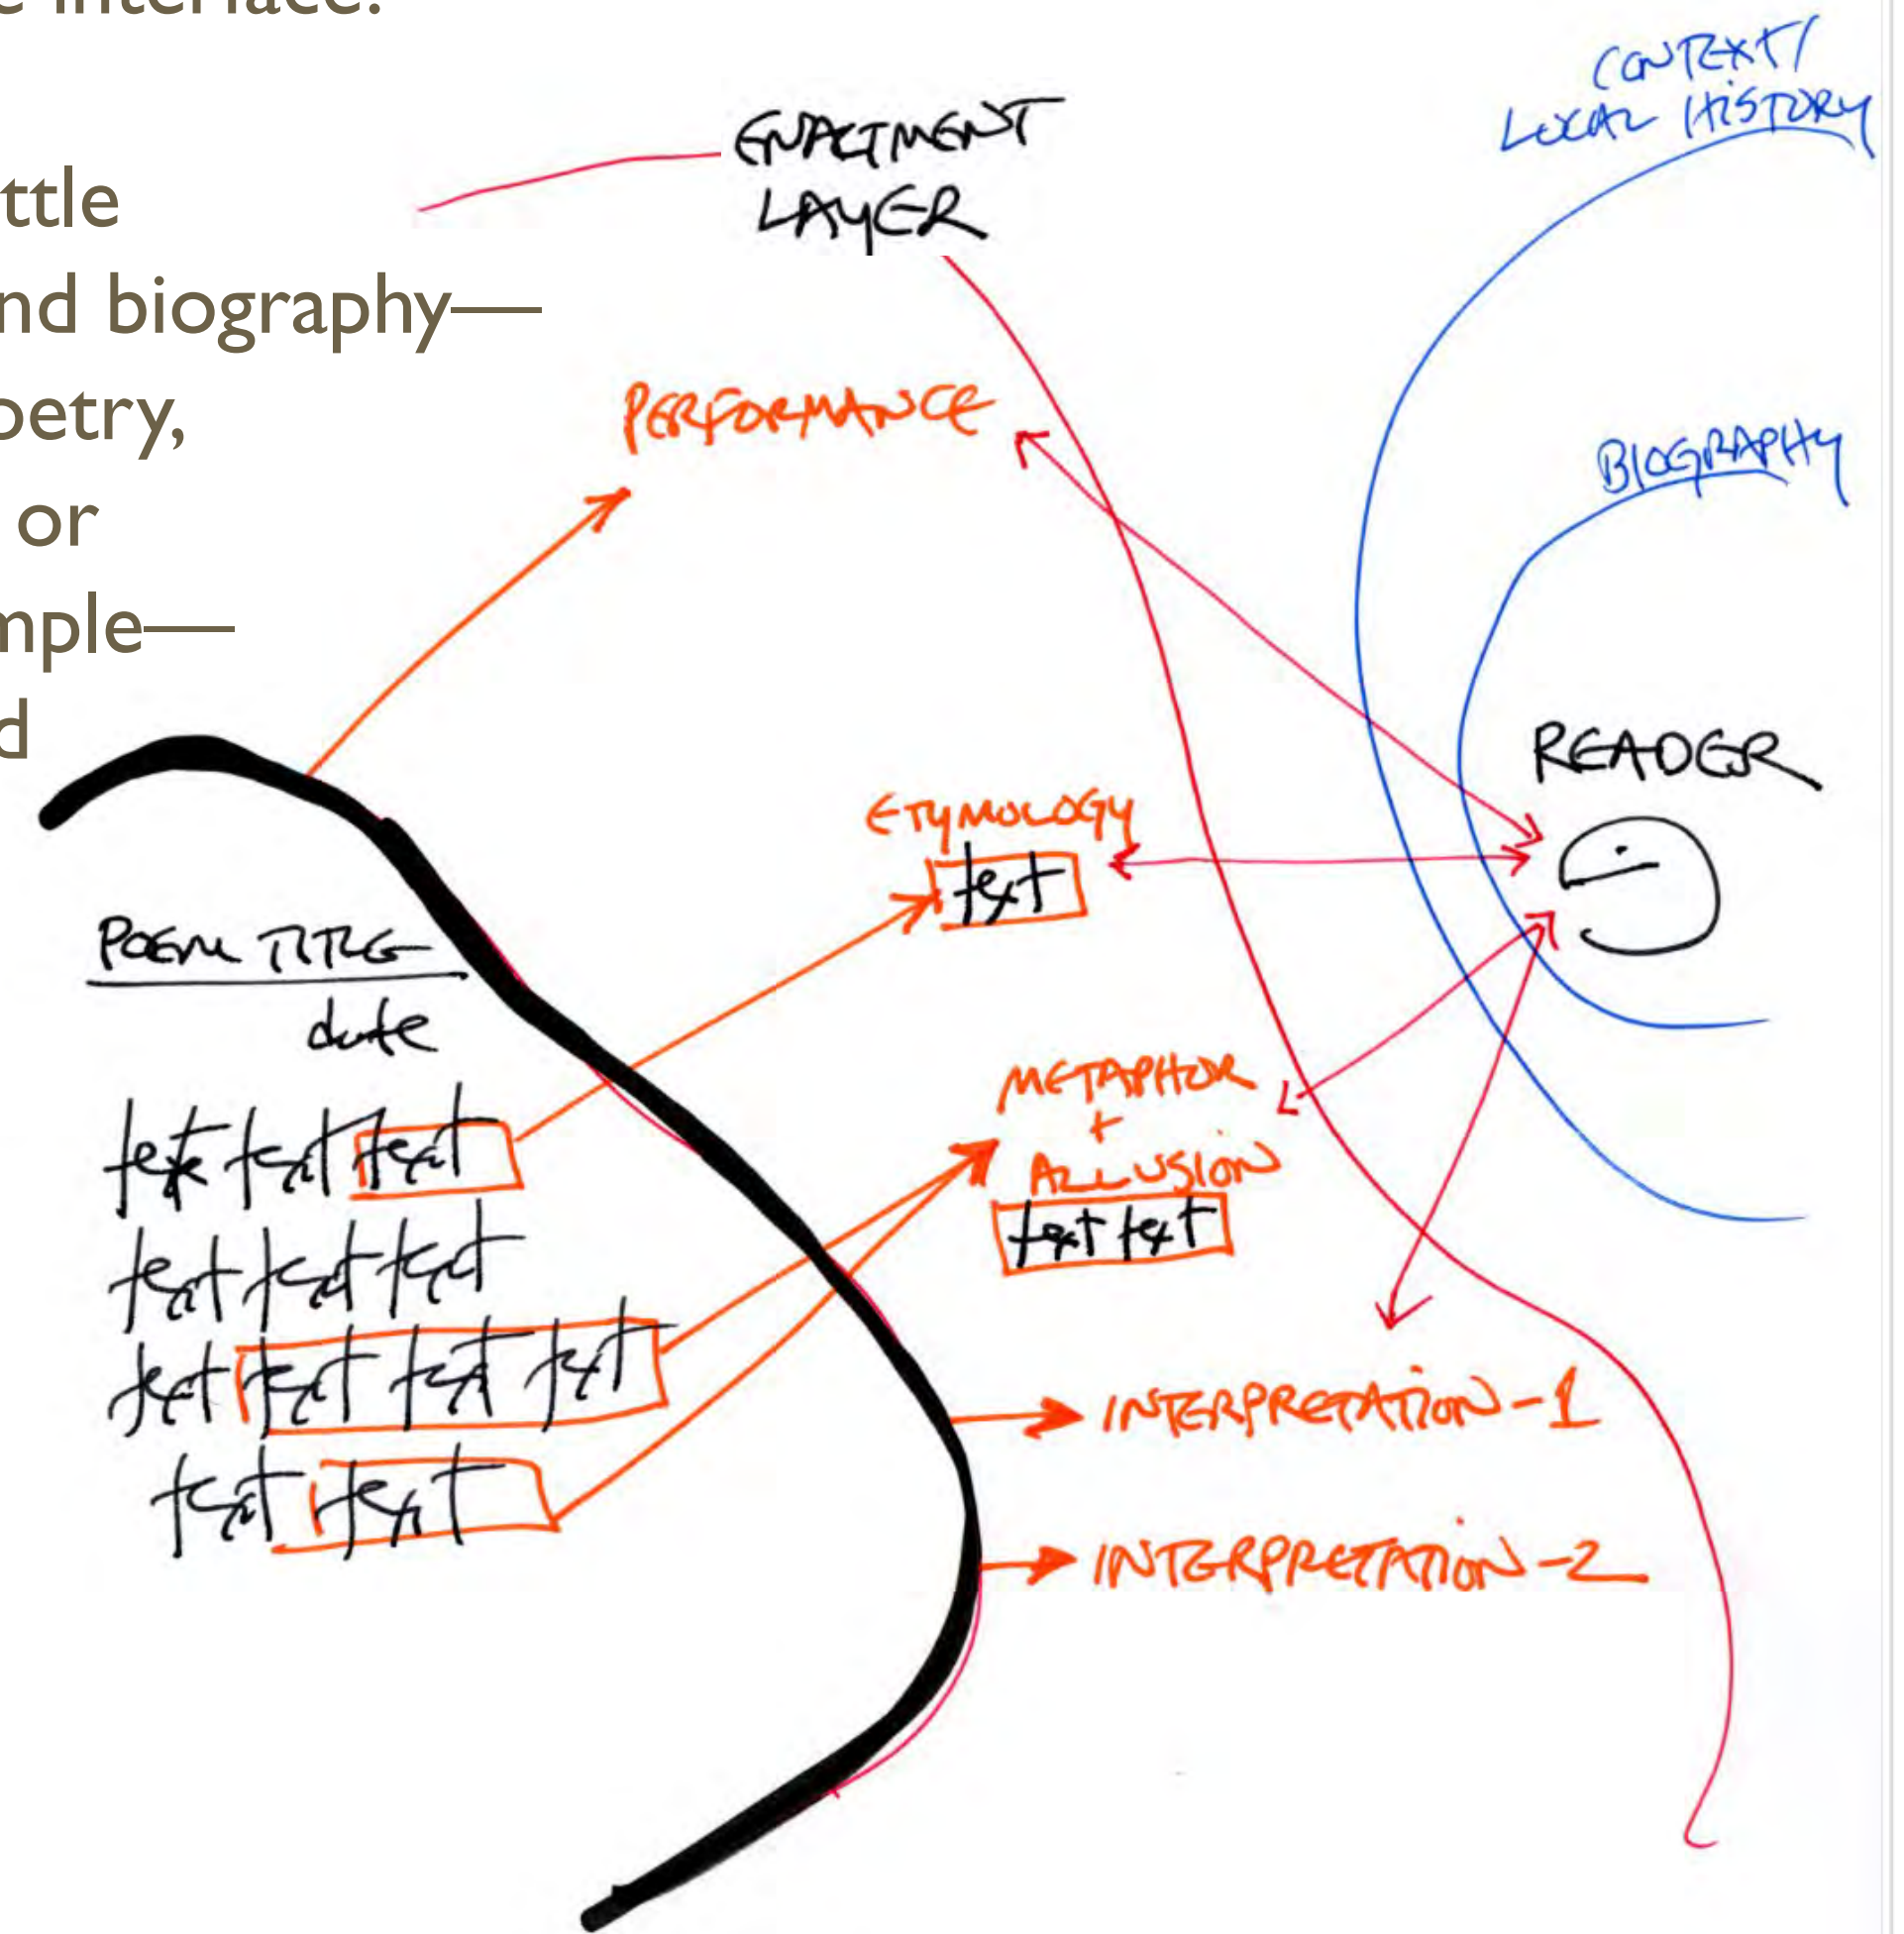 e interface.
ttle
nd biography—
oetry,
or
mple—
d
ENACTMENT
LAYER
CONTEXT/
LOCAL HISTORY
PERFORMANCE
BIOGRAPHY
READER
ETYMOLOGY
text
POEM TITLE
date
text text text
text text text
text text text text
text text
METAPHOR
+
ALLUSION
text text
INTERPRETATION-1
INTERPRETATION-2